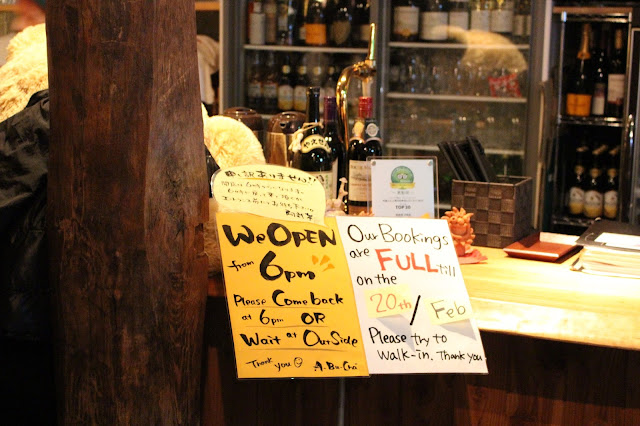 申し訳ありません!!
We OPEN
from 6pm
Please Come back
at 6pm OR
Wait at Our Side
Thank you A-Bu-Cha
Our Bookings
are FULL till
on the
20th / Feb
Please try to
walk-in. Thank you
TOP 30